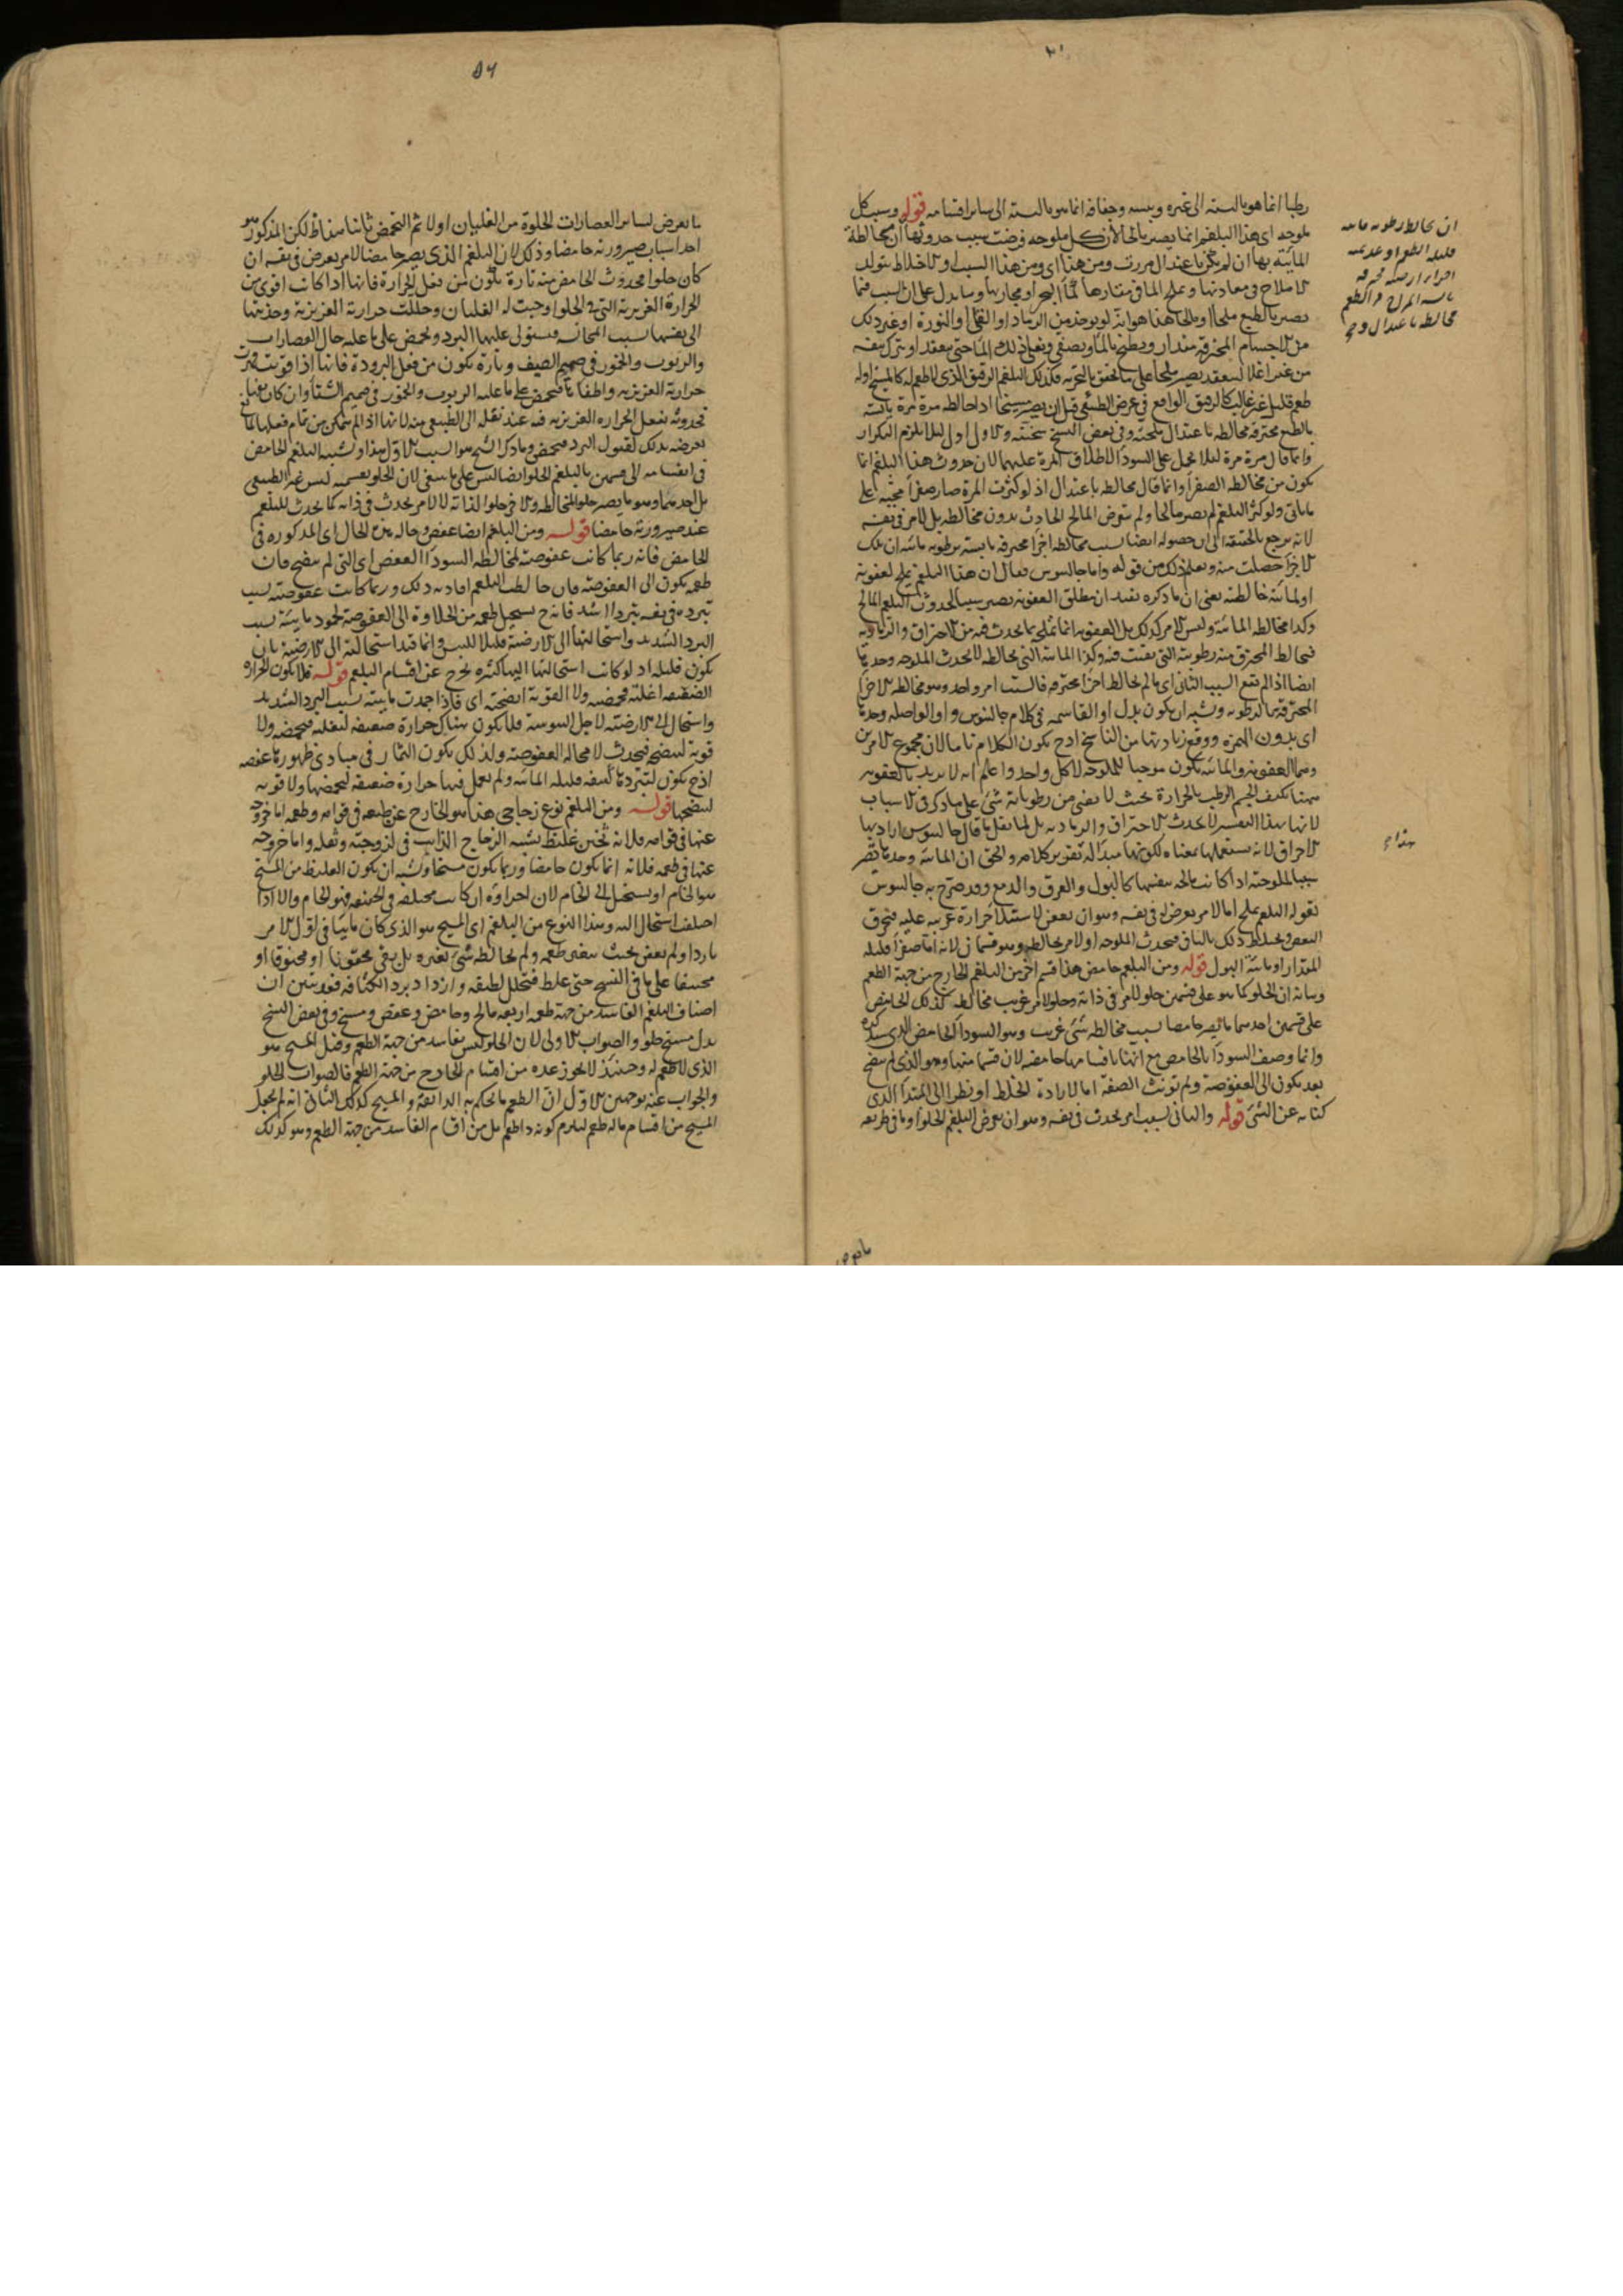 رطبا انما هو بالنسبة الى غيره ويبسه وجفافه انما هو بالنسبة الى سائر اقسامه قوله وسبب كل
ملوحة اى هذا البلغم انما يصير مالحا لان كل ملوحة فرضت سبب حدوثها ان مخالطة
المائية بها ان لم يكن باعتدال مررت ومن هذا اى ومن هذا السبب او الاخلاط يتولد
الاملاح فى معادنها وتملح المياه فى مقارها كماء البحر او مجاريها ومما يدل على ان السبب فيما
يصير بالطبع ملحا او مالحا هذا هو انه لو يوخذ من الرماد او القلى او النورة او غير ذلك
من الاجسام المحترقة مقدار ويطبخ بالماء ويصفى ويغلى ذلك الماء حتى ينعقد او يترك بنفسه
من غير اغلاء لينعقد يصير ملحا على ما تحقق بالتجربة فكذلك البلغم الرقيق الذى لا طعم له كالمسيخ او له
طعم قليل غير غالب كالرقيق الواقع فى عرض الطبيعى قبل ان يصير مسيخا اذا خالطه مرة مرة يابسة
بالطبع محترقة مخالطة باعتدال ملحته وفى بعض النسخ سخنته والاول اولى لئلا يلزم التكرار
وانما قال مرة مرة لئلا يحمل على السوداء لاطلاق المرة عليهما لان حدوث هذا البلغم انما
يكون من مخالطة الصفراء وانما قال مخالطة باعتدال اذ لو كثرت المرة صار صفراء محية على
ما ياتى ولو كثر البلغم لم يصر مالحا ولم يتعرض المالح الحادث بدون مخالطة بل لامر فى نفسه
لانه يرجع بالحقيقة الى ان حصوله ايضا بسبب مخالطة اجزاء محترقة يابسة برطوبة مائية ان تلك
الاجزاء حصلت منه ويعلم ذلك من قوله واما جالينوس فقال ان هذا البلغم يملح لعفونته
او لمائية خالطته يعنى ان ما ذكره يفيد ان مطلق العفونة يصير سببا لحدوث البلغم المالح
وكذا مخالطة المائية وليس الامر كذلك بل العفونة انما تملحه بما يحدث فيه من الاحتراق والرمادية
فيخالط المحترق منه رطوبته التى بقيت فيه وكذا المائية التى تخالطه لا تحدث الملوحة وحدها
ايضا اذا لم يقع السبب الثانى اى ما لم تخالط اجزاء محترقة فالسبب امر واحد وهو مخالطة الاجزاء
المحترقة بالرطوبة ويشبه ان يكون بدل او القاسمة فى كلام جالينوس واو الواصلة وحدها
اى بدون الهمزة ووقع زيادتها من الناسخ اذ ح يكون الكلام تاما لان مجموع الامرين
وهما العفونة والمائية يكون موجبا للملوحة لا كل واحد واعلم انه لا يريد بالعفونة
لانها بهذا التفسير لا تحدث الاحتراق والرمادية بل لما نقل ما قال جالينوس اراد بها
الاحراق لانه يستعملها بمعناه لكونها مبدأ له تقوير كلامه والحق ان المائية وحدها تصير
سببا للملوحة اذا كانت مالحة بنفسها كالبول والعرق والدمع وقد صرح به جالينوس
بقوله البلغم يملح اما لامر يعرض له فى نفسه وهو ان يعفن لاستيلاء حرارة غريبة عليه فيحرق
البعض ويختلط ذلك بالباقى فيحدث الملوحة او لامر يخالطه وهو قسمان لانه اما صفراء قليلة
المقدار او مائية البول قوله ومن البلغم حامض هذا قسم اخر من البلغم الخارج من جهة الطعم
وبيانه ان الحلو كما هو على قسمين حلو لامر فى ذاته وحلو لامر غريب مخالطه كذلك الحامض
على قسمين احدهما ما يصير حامضا بسبب مخالطة شئ غريب وهو السوداء الحامض الذى سنذكره
وانما وصف السوداء بالحامض مع انها باقسامها حامضة لان قسما منها وهو الذى لم ينضج
بعد يكون الى العفوصة ولم يونث الصفة اما لارادة الخلط او نظرا الى المبتدأ الذى
كناية عن الشئ قوله والثانى بسبب امر يحدث فى نفسه وهو ان يعرض للبلغم الحلو او ما فى طريقه
ان تخالط رطوبة مائية
قليلة الطعم او عديمته
اجزاء ارضية محترقة
يابسة المزاج مرة الطعم
مخالطة باعتدال
٥٦
ما يعرض لسائر العصارات الحلوة من الغليان اولا ثم التحمض ثانيا لكن المذكور هو
احد اسباب صيرورته حامضا وذلك لان البلغم الذى يصير حامضا لامر يعرض فى نفسه ان
كان حلوا فحدوث الحامض منه تارة يكون من فعل الحرارة فانها اذا كانت اقوى من
الحرارة الغريزية التى فى الحلو اوجبت له الغليان وحللت حرارته الغريزية وجذبتها
الى نفسها بسبب المجانسة فيستولى عليها البرد ويحمض على ما عليه حال العصارات
والربوب والخمور فى صميم الصيف وتارة يكون من فعل البرودة فانها اذا قويت قهرت
حرارته الغريزية واطفاتها فيحمض على ما عليه الربوب والخمور فى صميم الشتاء وان كان تفها
فحدوثه بفعل الحرارة الغريزية فيه عند نقله الى الطبيعى منه لانها اذا لم تتمكن من تمام فعلها لمانع
يعرضه بذلك لقبول البرد فيحمض وما ذكره الشيخ هو السبب الاول هذا وتشبيه البلغم الحامض
فى انقسامه الى قسمين بالبلغم الحلو ايضا ليس على ما ينبغى لان الحلو بقسميه ليس غير الطبيعى
بل احدهما وهو ما يصير حلوا لمخالطة والاخر حلو لذاته لا لامر يحدث فى ذاته كما يحدث للبلغم
عند صيرورته حامضا قوله ومن البلغم ايضا عفص وحاله هذه الحال اى المذكورة فى
الحامض فانه ربما كانت عفوصته لمخالطة السوداء العفص اى التى لم ينضج فان
طعمه يكون الى العفوصة فان خالطت البلغم افادته ذلك وربما كانت عفوصته بسبب
تبرده فى نفسه تبردا اشد فانه ح يستحيل طعمه من الحلاوة الى العفوصة لجمود مائيته بسبب
البرد الشديد واستحالتها الى الارضية قليلا لليبس وانما قيد استحالته الى الارضية بان
يكون قليلة اذ لو كانت استحالتها اليها كثيرة لخرج عن اقسام البلغم قوله فلا يكون الحرارة
الضعيفة اغلته فحمضته ولا القوية انضجته اى فاذا جمدت مائيته بسبب البرد الشديد
واستحال الى الارضية لاجل اليبوسة فلا يكون هناك حرارة ضعيفة لتغليه فتحمضه ولا
قوية لتنضجه فيحدث لا محالة العفوصة ولذلك يكون الثمار فى مبادئ ظهورها عفصة
اذ ح يكون لتبردها كثيفة قليلة المائية ولم تعمل فيها حرارة ضعيفة لتحمضها ولا قوية
لتنضجها قوله ومن البلغم نوع زجاجى هذا هو الخارج عن طبعه فى قوامه وطعمه اما خروجه
عنها فى قوامه فلانه ثخين غليظ يشبه الزجاج الذائب فى لزوجته وثقله واما خروجه
عنها فى طعمه فلانه انما يكون حامضا وربما يكون مسيخا ويشبه ان يكون الغليظ من المسيخ
هو الخام او يستحيل الى الخام لان اجزاوه ان كانت مختلفة فى الحقيقة فهو الخام والا اذا
اختلف استحال اليه وهذا النوع من البلغم اى المسيخ هو الذى كان مائيا فى اول الامر
باردا ولم يعفن بحيث يتغير طعمه ولم يخالطه شئ لغيره بل بقى محقونا او مخنوقا او
على ما فى النسخ حتى غلظ فتحلل لطيفه وازداد بردا لكثافته فقد تبين ان
اصناف البلغم الفاسد من جهة طعمه اربعة مالح وحامض وعفص ومسيخ وفى بعض النسخ
بدل مسيخ حلو والصواب الاولى لان الحلو ليس بفاسد من جهة الطعم وقيل المسيخ هو
الذى لا طعم له وحينئذ لا يجوز عده من اقسام الخارج من جهة الطعم فالصواب الحلو
والجواب عنه بوجهين الاول ان الطعم ما يحكم به الذائقة والمسيخ كذلك الثانى انه لم يجعل
المسيخ من اقسام ما له طعم ليلزم كونه ذا طعم بل من اقسام الفاسد من جهة الطعم وهو كذلك